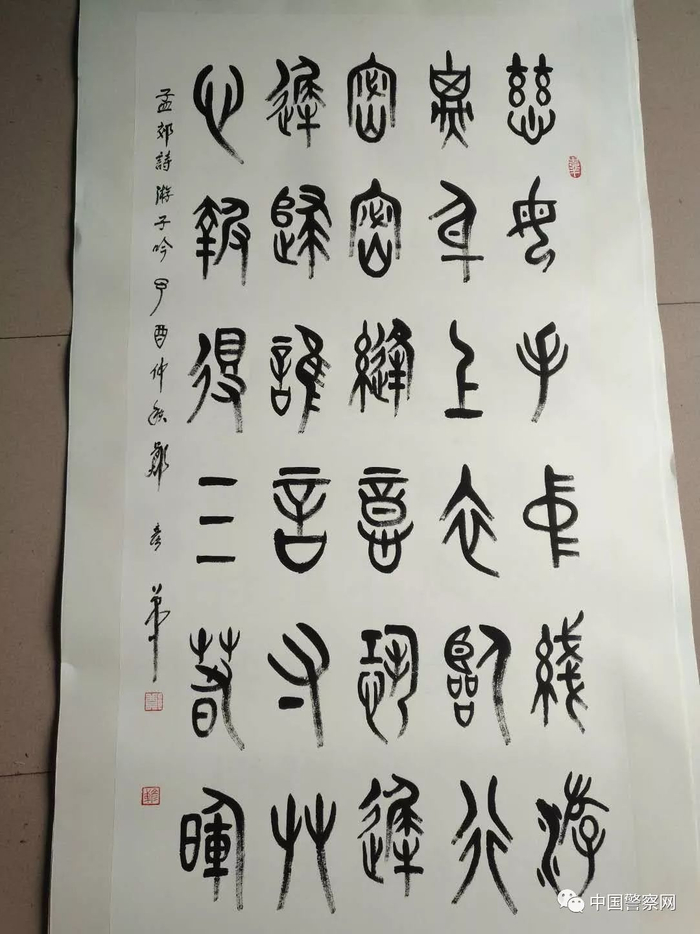 慈母手中綫游
子身上衣臨行
密密縫意恐遲
遲歸誰言寸艸
心報得三春暉
孟郊詩游子吟丁酉仲秋鄭彦
中国警察网